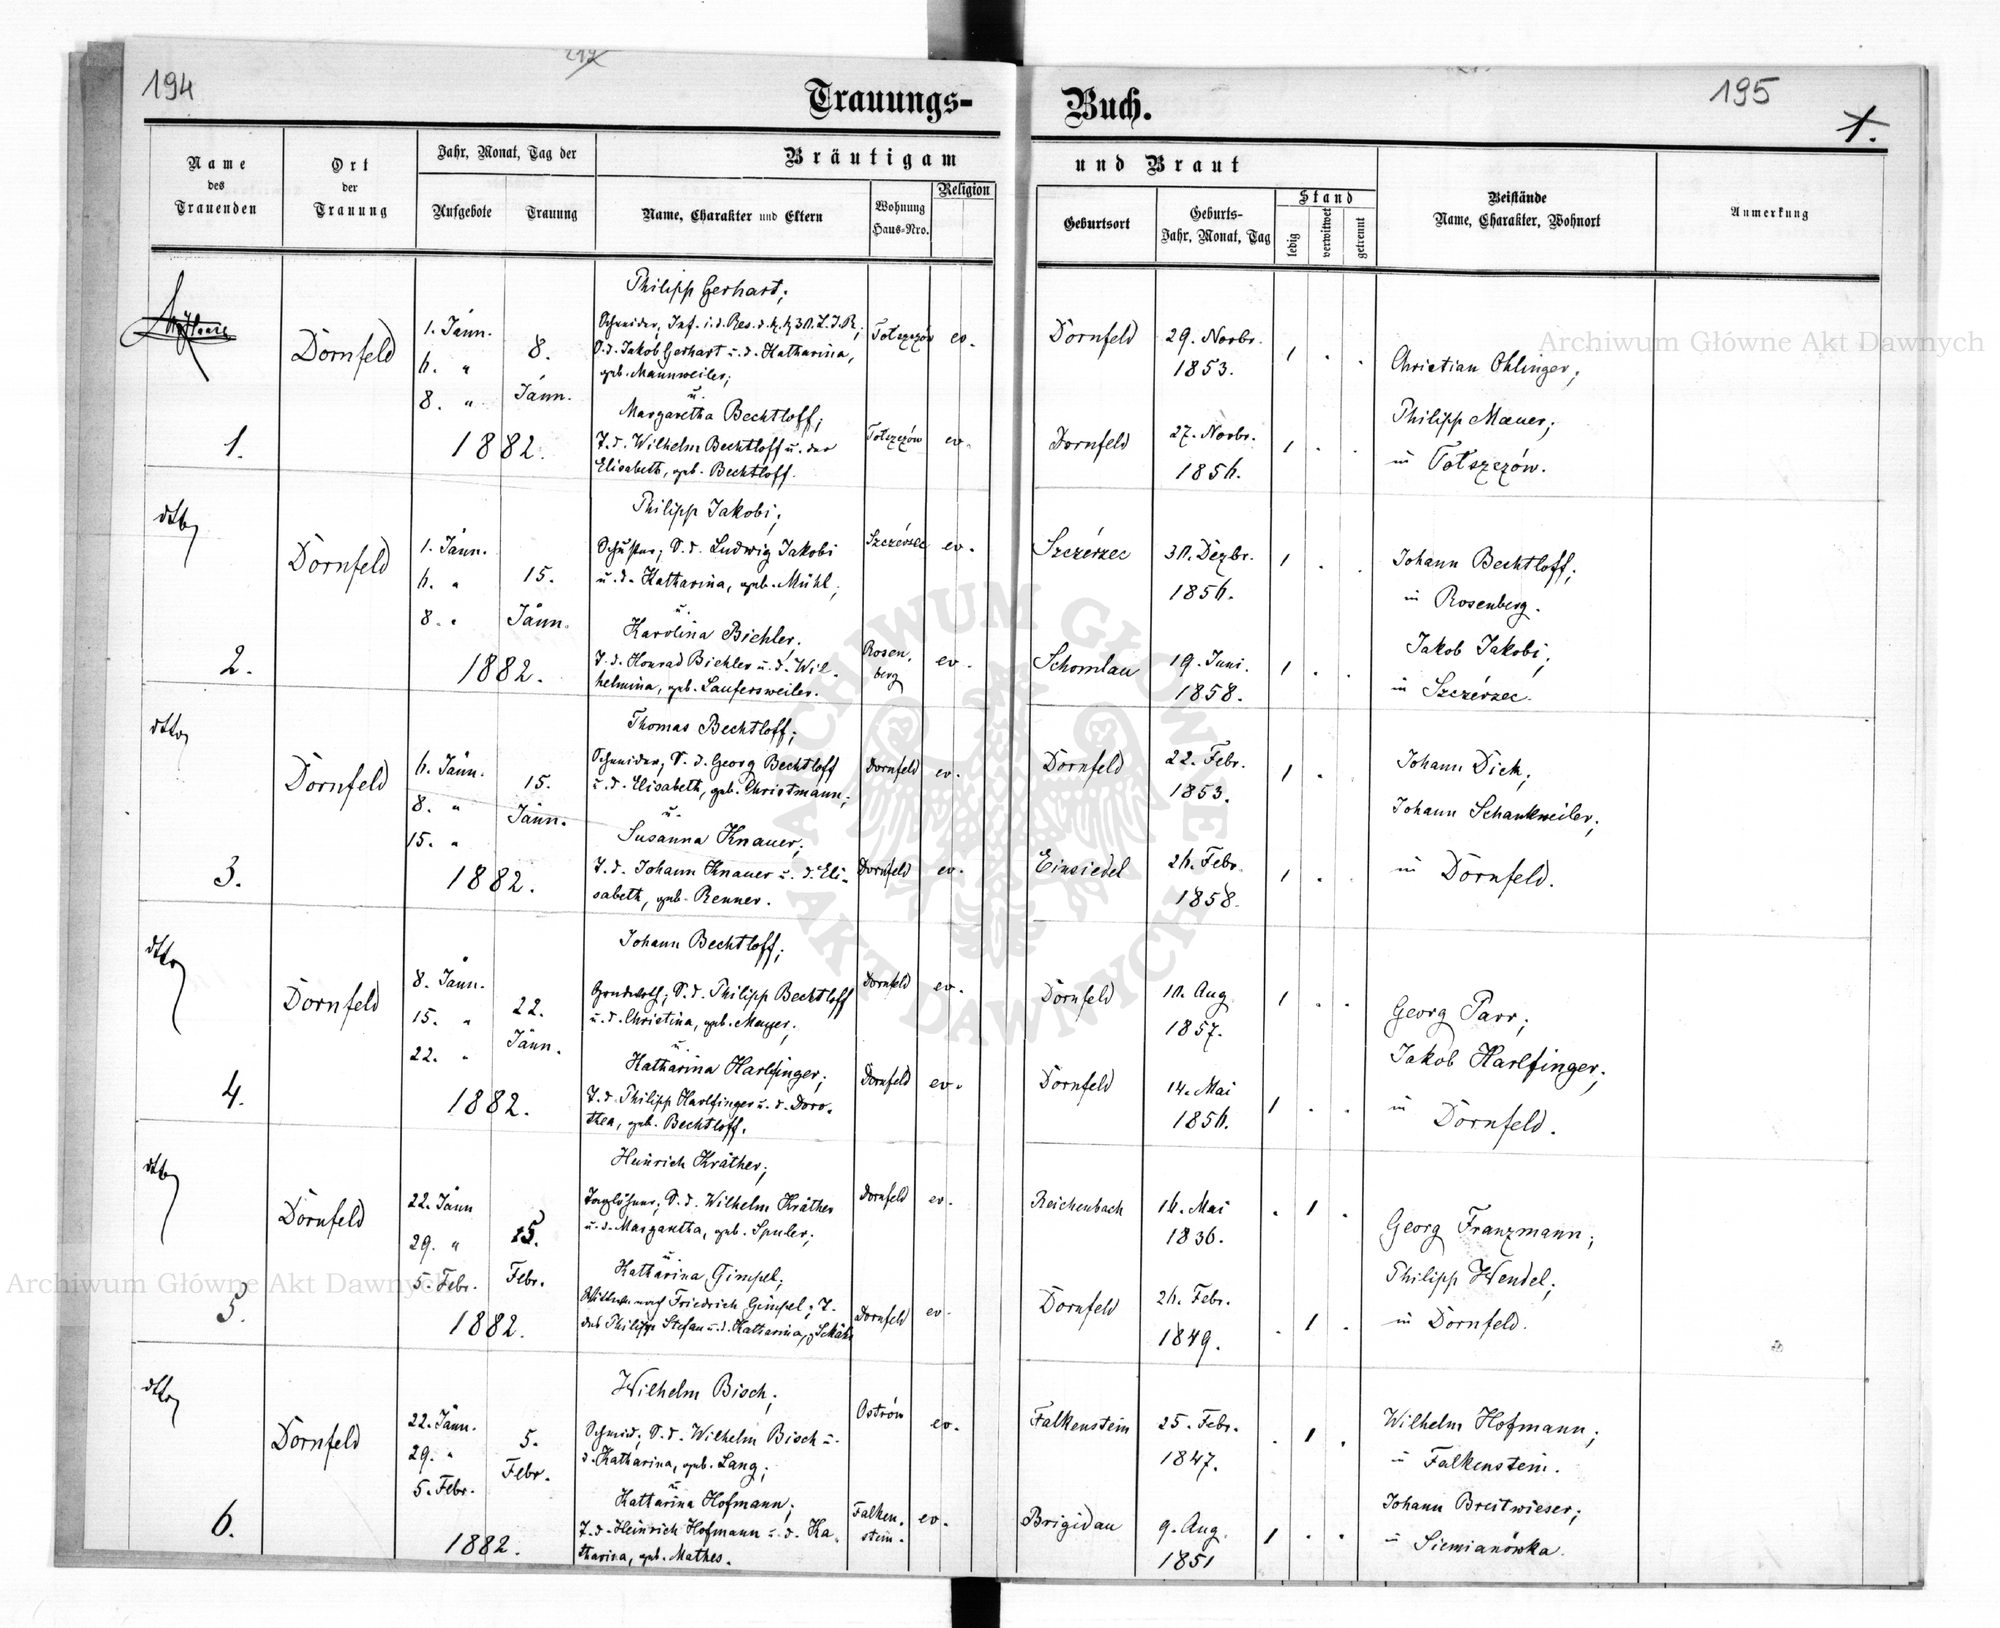 194
Trauungs-
Buch.
195
1.
Name
des
Trauenden
Ort
der
Trauung
Jahr, Monat, Tag der
Aufgebote
Trauung
Bräutigam
und Braut
Name, Charakter und Eltern
Wohnung
Haus-Nro.
Religion
Geburtsort
Geburts-
Jahr, Monat, Tag
Stand
ledig
verwitwet
getrennt
Beistände
Name, Charakter, Wohnort
Anmerkung
1.
Dornfeld
1. Jänn.
6. "
8. "
8.
Jänn.
1882.
Philipp Gerhart;
Schneider, Inf. i. d. Res. d. k. k. 30. L. I. R.;
S. d. Jakob Gerhart u. d. Katharina,
geb. Mannweiler;
u.
Margaretha Bechtloff;
T. d. Wilhelm Bechtloff u. der
Elisabeth, geb. Bechtloff.
Tołszczów ev.
Tołszczów ev.
Dornfeld 29. Novbr.
1853. 1 . .
Dornfeld 27. Novbr.
1856. 1 . .
Christian Ohlinger;
Philipp Mauer;
in Tołszczów.
dtto
2.
Dornfeld
1. Jänn.
6. "
8. "
15.
Jänn.
1882.
Philipp Jakobi;
Schuster; S. d. Ludwig Jakobi
u. d. Katharina, geb. Mühl;
u.
Karolina Bichler;
T. d. Konrad Bichler u. d. Wil-
helmina, geb. Laufersweiler.
Szczérzec ev.
Rosen-
berg ev.
Szczérzec 30. Dezbr.
1856. 1 . .
Schomlau 19. Juni.
1858. 1 . .
Johann Bechtloff;
in Rosenberg.
Jakob Jakobi;
in Szczérzec.
dtto
3.
Dornfeld
6. Jänn.
8. "
15. "
15.
Jänn.
1882.
Thomas Bechtloff;
Schneider; S. d. Georg Bechtloff
u. d. Elisabeth, geb. Christmann;
u.
Susanna Knauer;
T. d. Johann Knauer u. d. Eli-
sabeth, geb. Renner.
Dornfeld ev.
Dornfeld ev.
Dornfeld 22. Febr.
1853. 1 . .
Einsiedel 26. Febr.
1858. 1 . .
Johann Dick;
Johann Schankweiler;
in Dornfeld.
dtto
4.
Dornfeld
8. Jänn.
15. "
22. "
22.
Jänn.
1882.
Johann Bechtloff;
Grundwirth; S. d. Philipp Bechtloff
u. d. Christina, geb. Mayer;
u.
Katharina Harlfinger;
T. d. Philipp Harlfinger u. d. Doro-
thea, geb. Bechtloff.
Dornfeld ev.
Dornfeld ev.
Dornfeld 10. Aug
1857. 1 . .
Dornfeld 14. Mai
1856. 1 . .
Georg Parr;
Jakob Harlfinger;
in Dornfeld.
dtto
5.
Dornfeld
22. Jänn
29. "
5. Febr.
5.
Febr.
1882.
Heinrich Kräther;
Taglöhner; S. d. Wilhelm Kräther
u. d. Margaretha, geb. Spuler;
u.
Katharina Gimpel;
Wittwe nach Friedrich Gimpel; T.
des Philipp Stefan u. d. Katharina,
Dornfeld ev.
Dornfeld ev.
Reichenbach 16. Mai
1836. . 1 .
Dornfeld 26. Febr.
1849. . 1 .
Georg Franzmann;
Philipp Wendel;
in Dornfeld.
dtto
6.
Dornfeld
22. Jänn.
29. "
5. Febr.
5.
Febr.
1882.
Wilhelm Bisch;
Schmid; S. d. Wilhelm Bisch u.
d. Katharina, geb. Lang;
u
Katharina Hofmann;
T. d. Heinrich Hofmann u. d. Ka-
tharina, geb. Mathes.
Ostrów ev.
Falken-
stein. ev.
Falkenstein 25. Febr.
1847. . 1 .
Brigidau 9. Aug.
1851 1 . .
Wilhelm Hofmann;
in Falkenstein.
Johann Breitwieser;
in Siemianówka.
Archiwum Główne Akt Dawnych
Archiwum Główne Akt Dawnych
ARCHIWUM GŁÓWNE
AKT DAWNYCH